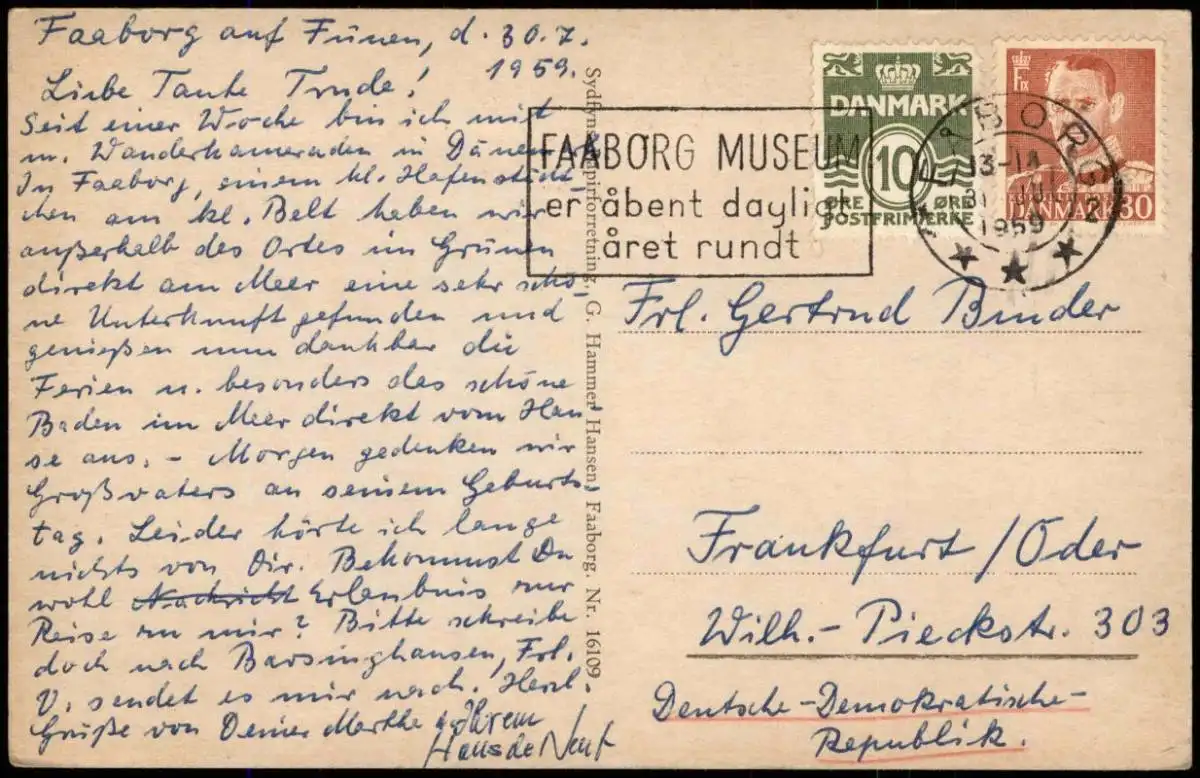 Faaborg auf Fünen, d. 30.7.
1959.
Liebe Tante Trude!
Seit einer Woche bin ich mit
m. Wanderkameraden in Dänemark
In Faaborg, einem kl. Hafenstädt-
chen am kl. Belt haben wir
außerhalb des Ortes im Grünen
direkt am Meer eine sehr schö-
ne Unterkunft gefunden und
genießen nun dankbar die
Ferien u. besonders das schöne
Baden im Meer direkt vom Hau-
se aus. – Morgen gedenken wir
Großvaters an seinem Geburts-
tag. Leider hörte ich lange
nichts von Dir. Bekommst Du
wohl Nachricht Erlaubnis zur
Reise zu mir? Bitte schreibe
doch nach Barsinghausen, Frl.
V. sendet es mir nach. Herzl.
Grüße von Deiner Marthe
Ihrem
Hans de
Sydfyns Papirforretning, G. Hammer Hansen, Faaborg. Nr. 16109
FAABORG MUSEUM
er åbent dayligt
året rundt
DANMARK
10
ØRE ØRE
POSTFRIMÆRKE
FIX
DANMARK 30
FÅBORG
13-14
31 JUL
1959
2
Frl. Gertrud Binder
Frankfurt/Oder
Wilh.-Pieckstr. 303
Deutsche-Demokratische-
Republik.